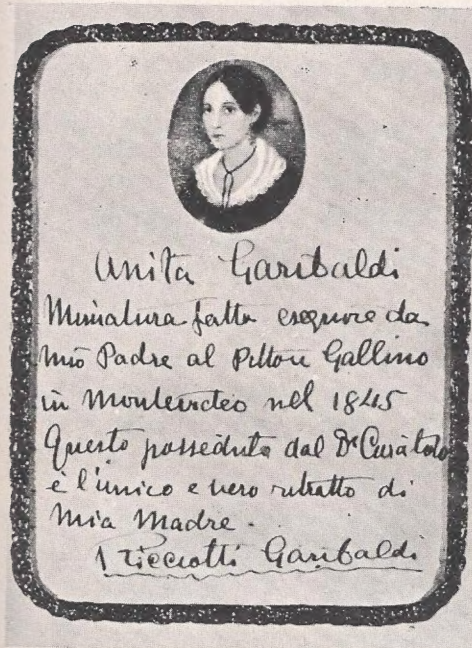 Anita Garibaldi
Miniatura fatta eseguire da
mio Padre al Pittore Gallino
in Montevideo nel 1845
Questo posseduto dal Dr Curátolo
è l'unico e vero ritratto di
Mia Madre.
Ricciotti Garibaldi